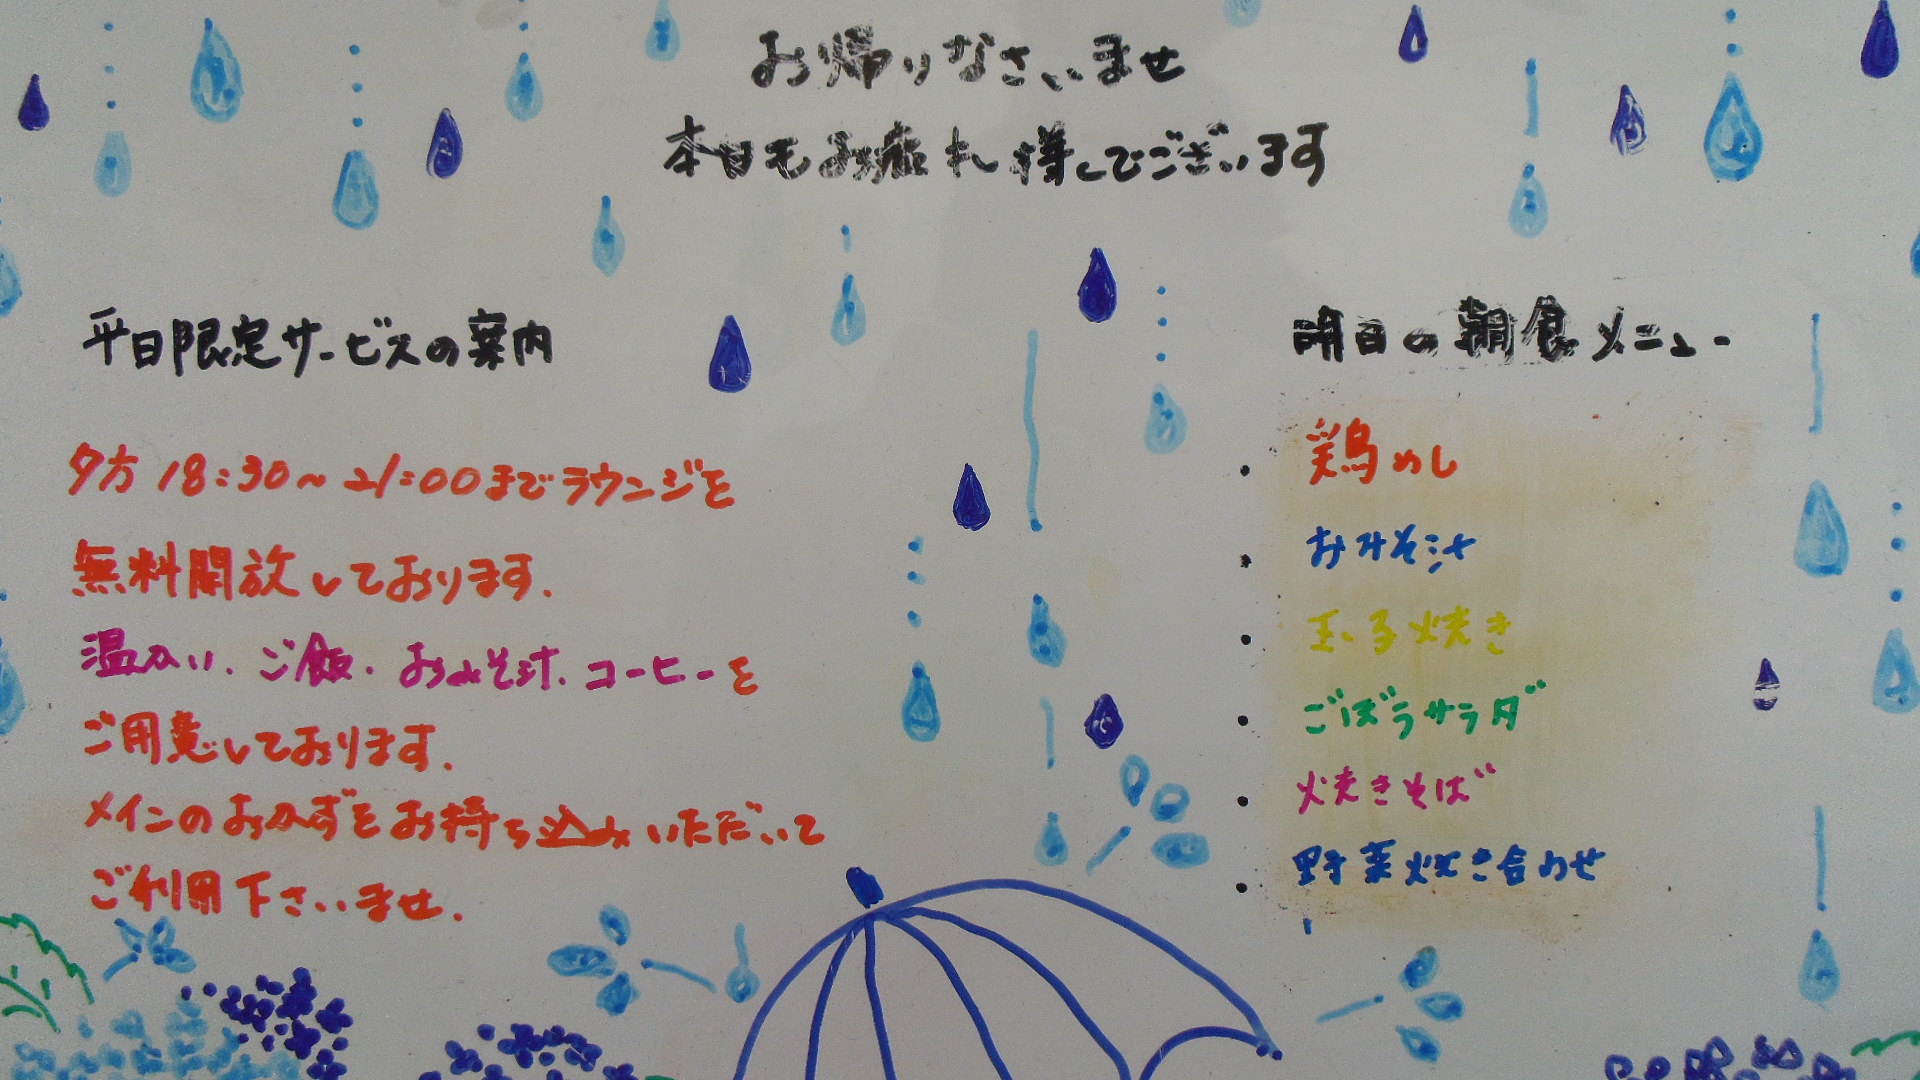 お帰りなさいませ
本日もお疲れ様でございます
平日限定サービスの案内
夕方18:30~21:00までラウンジを
無料開放しております.
温かい.ご飯.おみそ汁.コーヒーを
ご用意しております.
メインのおかずをお持ち込みいただいて
ご利用下さいませ.
明日の朝食メニュー
・鶏めし
・おみそ汁
・玉子焼き
・ごぼうサラダ
・焼きそば
・野菜炊き合わせ